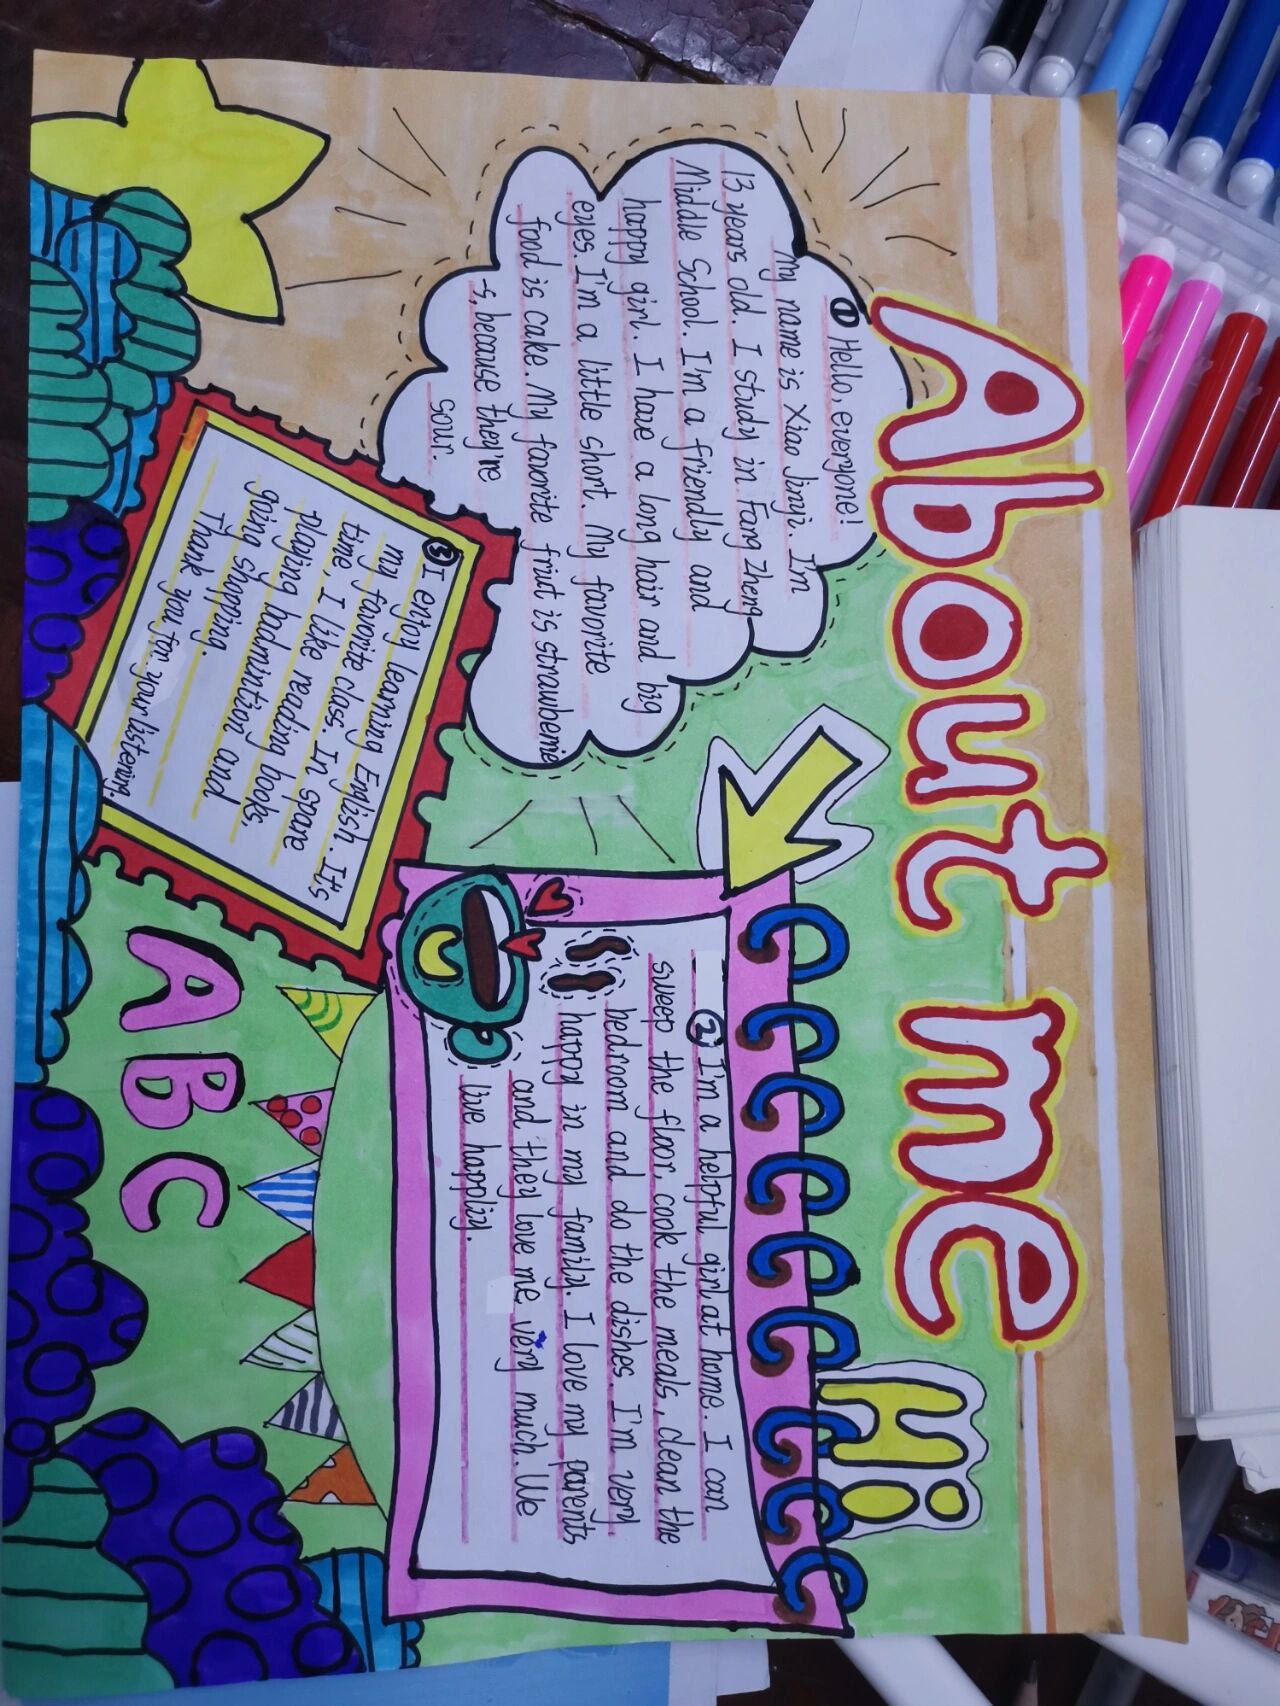 About me
Hi
① Hello, everyone!
My name is Xiao Jinyi. I'm
13 years old. I study in Fang Zheng
Middle School. I'm a friendly and
happy girl. I have a long hair and big
eyes. I'm a little short. My favorite
food is cake. My favorite fruit is strawberrie
-s, because they're
sour.
② I'm a helpful girl at home. I can
sweep the floor, cook the meals, clean the
bedroom and do the dishes. I'm very
happy in my family. I love my parents
and they love me very much. We
live happily.
③ I enjoy learning English. It's
my favorite class. In spare
time, I like reading books,
playing badmintion and
going shopping.
Thank you for your listening.
ABC